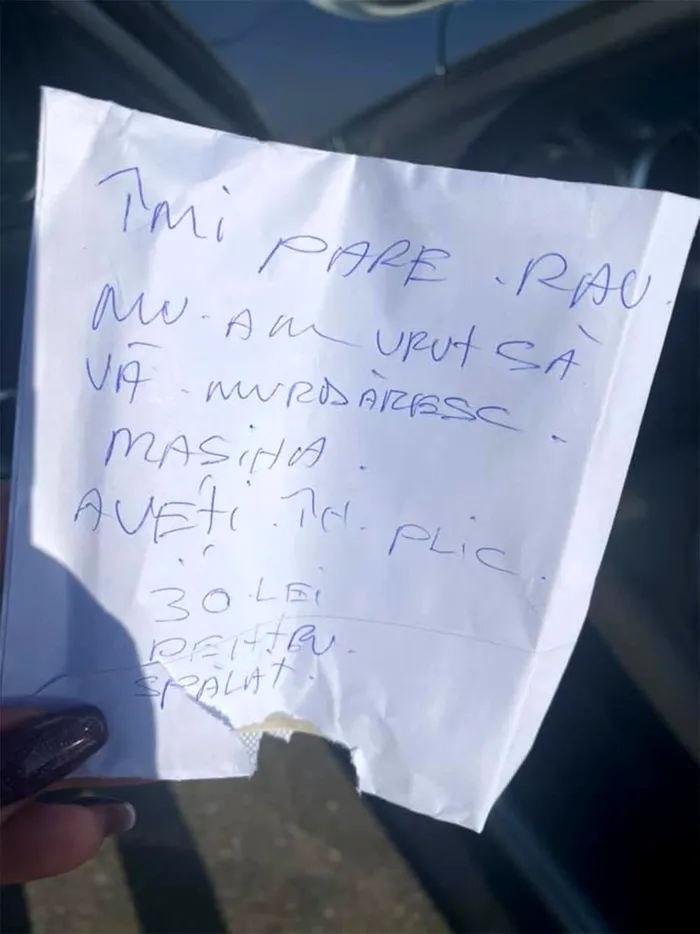 ÎMI PARE RAU
NU AM VRUT SĂ
VĂ MURDĂRESC
MAȘINA.
AVEȚI ÎN PLIC
30 LEI
PENTRU
SPĂLAT.